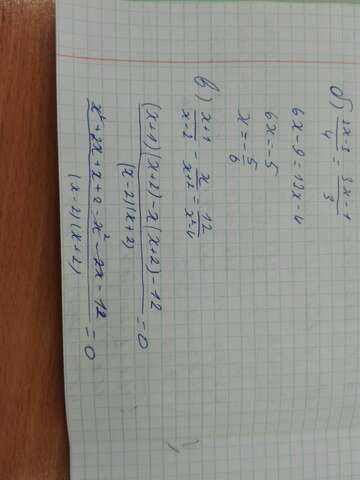 б) (2x-3)/4 = (3x-1)/3
6x-9=12x-4
6x=-5
x=-5/6
в) (x+1)/(x-2) - x/(x+2) = 12/(x²-4)
((x+1)(x+2)-x(x+2)-12)/((x-2)(x+2)) =0
(x²+2x+x+2-x²-2x-12)/((x-2)(x+2)) =0